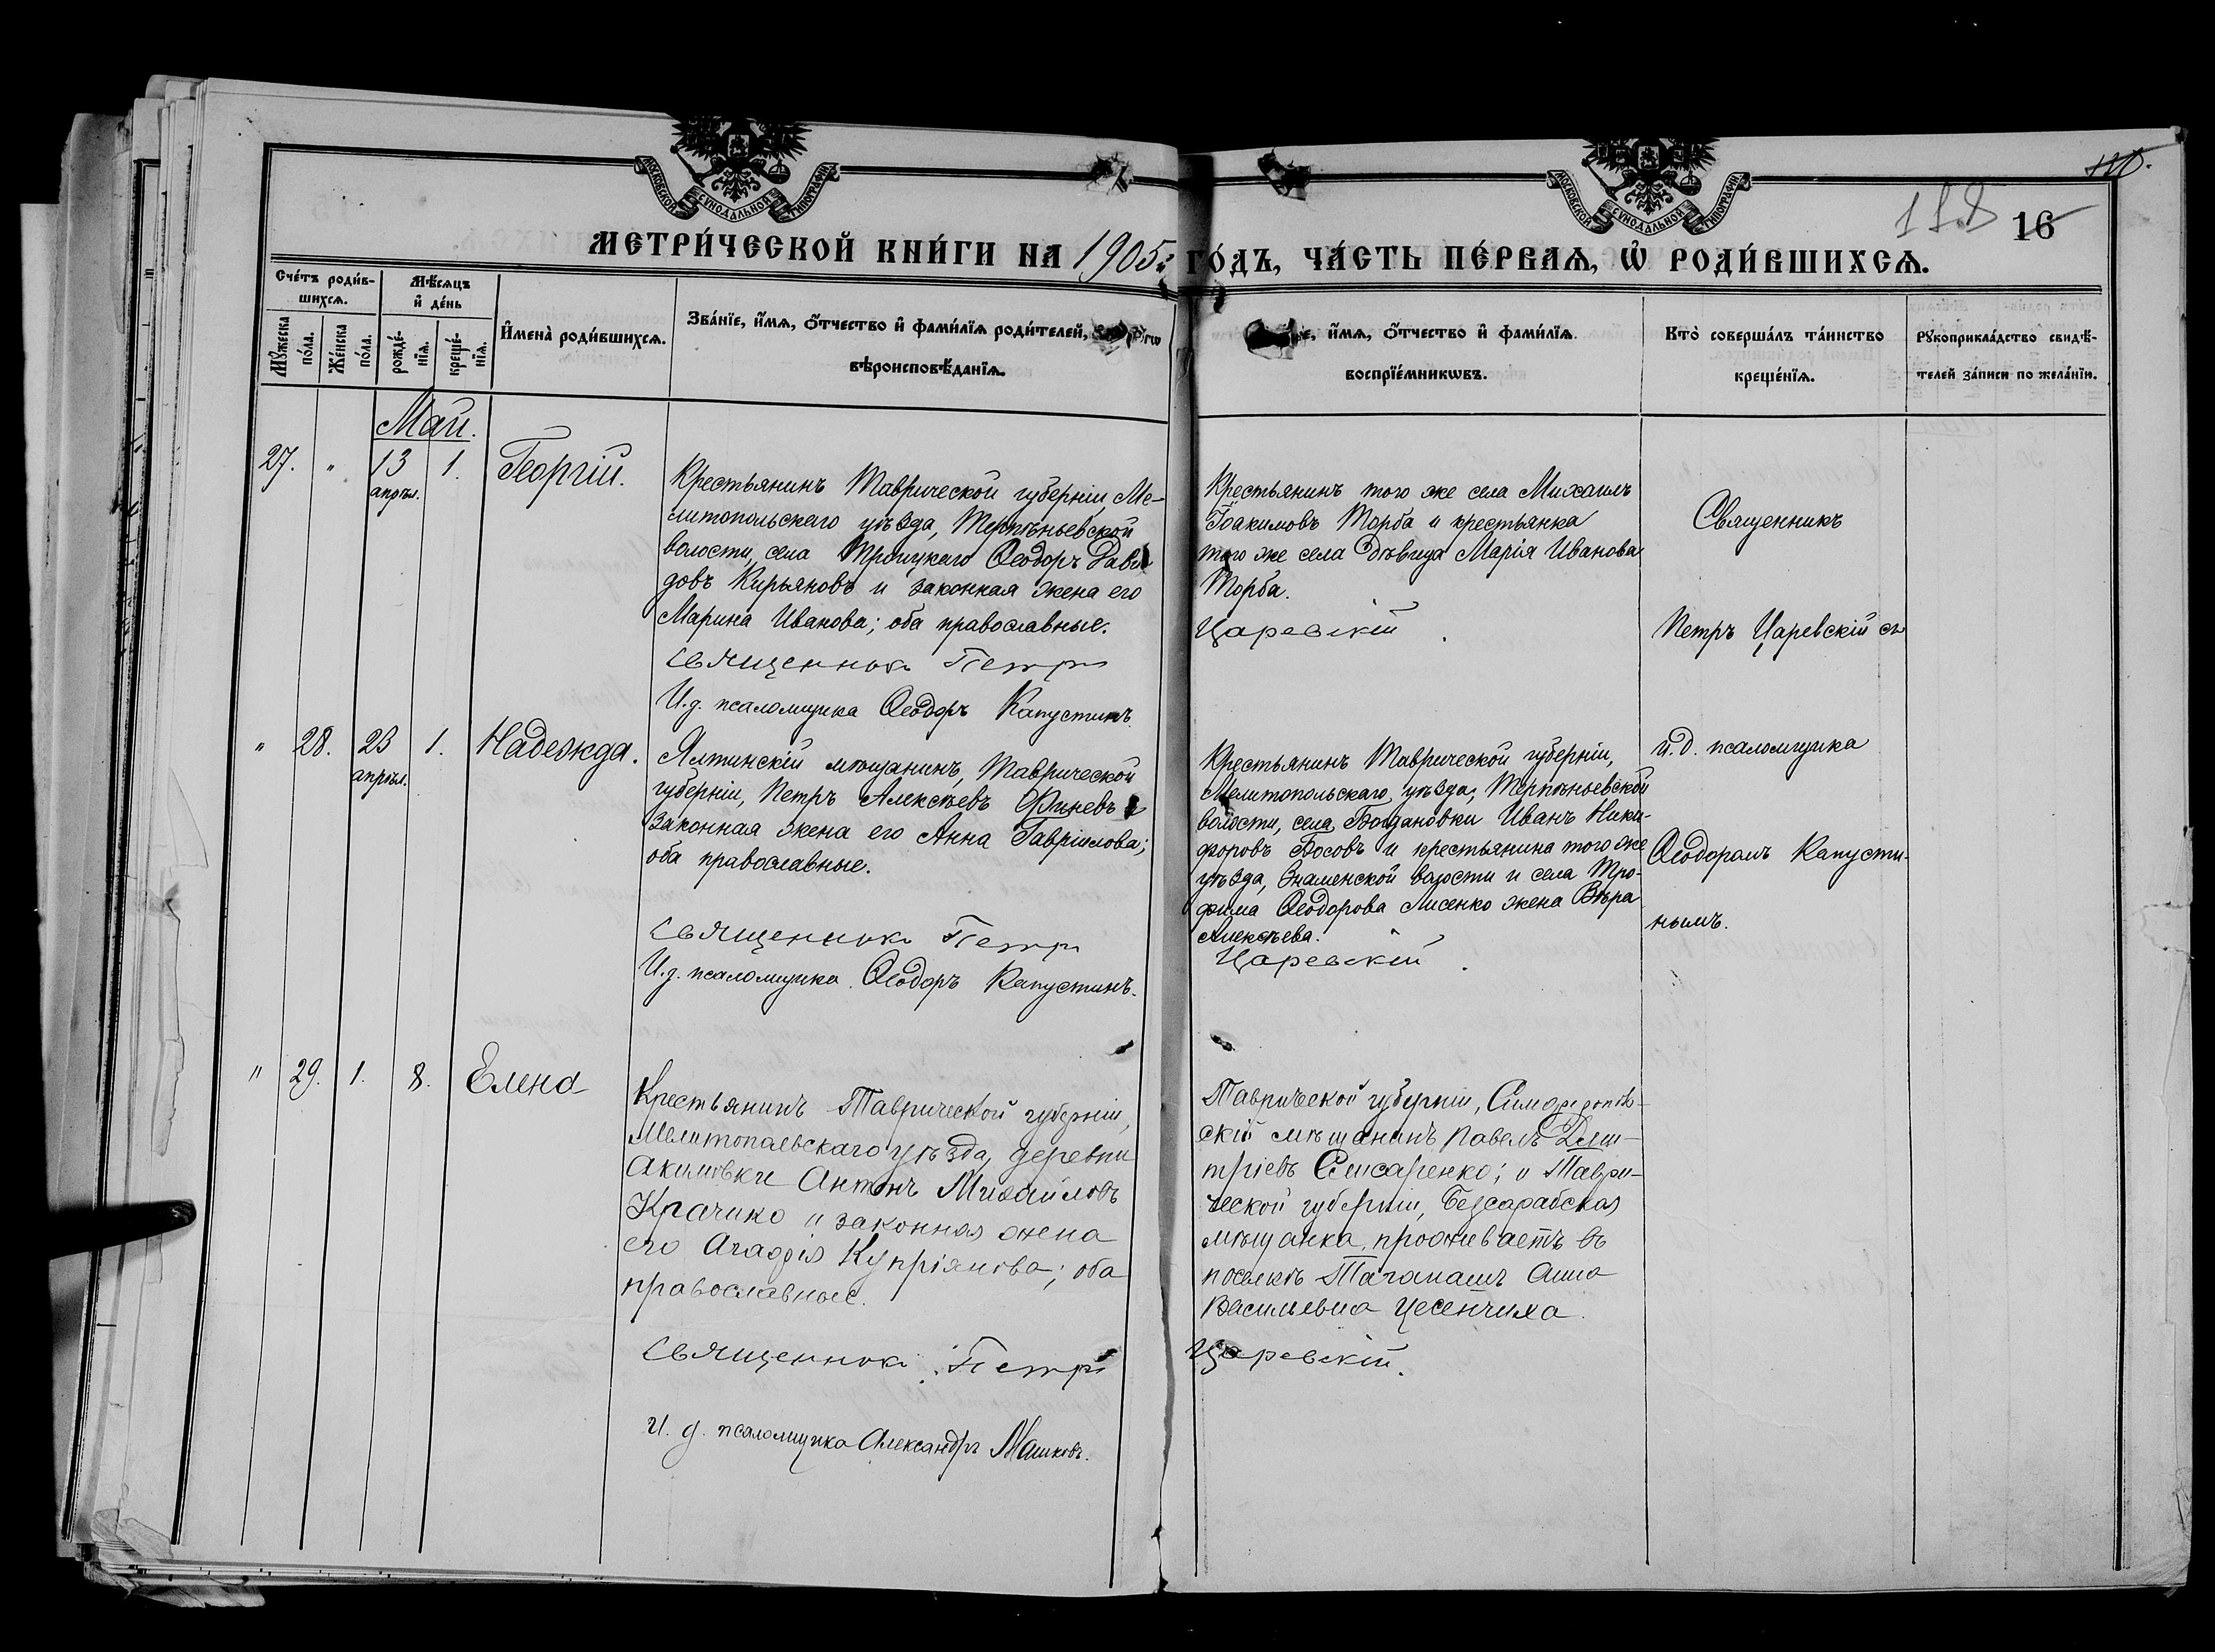 МОСКОВСКОЙ СѴНОДАЛЬНОЙ ТИПОГРАФІИ
МОСКОВСКОЙ СѴНОДАЛЬНОЙ ТИПОГРАФІИ
16
МЕТРИ́ЧЕСКОЙ КНИ́ГИ НА 1905 г. ГО́ДЪ, ЧА́СТЬ ПЕ́РВАѦ, Ѡ҆ РОДИ́ВШИХСѦ.
Сче́тъ роди́в-
шихсѧ.
Мꙋ́жеска по́ла.
Же́нска по́ла.
Мѣ́сѧцъ
и҆ де́нь
рожде́-нїѧ.
креще́-нїѧ.
И҆мена̀ роди́вшихсѧ.
Зва́нїе, и҆́мѧ, ѻ҆́тчество и҆ фами́лїѧ роди́телей,
вѣроисповѣ́данїѧ.
и҆́мѧ, ѻ҆́тчество и҆ фами́лїѧ
воспрїе́мникѡвъ.
Кто̀ соверша́лъ та́инство
креще́нїѧ.
Рꙋкоприкла́дство свидѣ́-
телей за́писи по жела́нїю.
Май.
27. " 13 апрѣл. 1. Георгій.
Крестьянинъ Таврической губерніи, Ме-
литопольскаго уѣзда, Терпѣньевской
волости, села Троицкаго Ѳеодоръ Дави
довъ Кирьяновъ и законная жена его
Марина Иванова; оба православные.
Священникъ Петръ
И.д. псаломщика Ѳеодоръ Капустинъ.
Крестьянинъ того же села Михаилъ
Іоакимовъ Торба и крестьянка
того же села дѣвица Марія Иванова
Торба.
Царевскій.
Священникъ
Петръ Царевскій съ
" 28. 23 апрѣл. 1. Надежда.
Ялтинскій мѣщанинъ, Таврической
губерніи, Петръ Алексѣевъ Финевъ и
законная жена его Анна Гавріилова;
оба православные.
Священникъ Петръ
И.д. псаломщика Ѳеодоръ Капустинъ.
Крестьянинъ Таврической губерніи,
Мелитопольскаго уѣзда, Терпѣньевской
волости, села Богдановки Иванъ Ники-
форовъ Босовъ и крестьянина того же
уѣзда, Знаменской волости и села Тро-
фима Ѳеодорова Лисенко жена Вѣра
Алексѣева.
Царевскій.
и.д. псаломщика
Ѳеодоромъ Капусти-
нымъ.
" 29. 1. 8. Елена
Крестьянинъ Таврической губерніи,
Мелитопольскаго уѣзда, деревни
Акимовки Антонъ Михайловъ
Крачико и законная жена
его Агафія Купріянова; оба
православные.
Священникъ Петръ
И. д. псаломщика Александръ Машковъ.
Таврической губерніи, Симферополь-
скій мѣщанинъ Павелъ Дми-
тріевъ Слисаренко; и Таври-
ческой губерніи, Безсарабская
мѣщанка, проживаетъ въ
поселкѣ Таганашъ Анна
Васильевна Цесенчиха.
Царевскій.